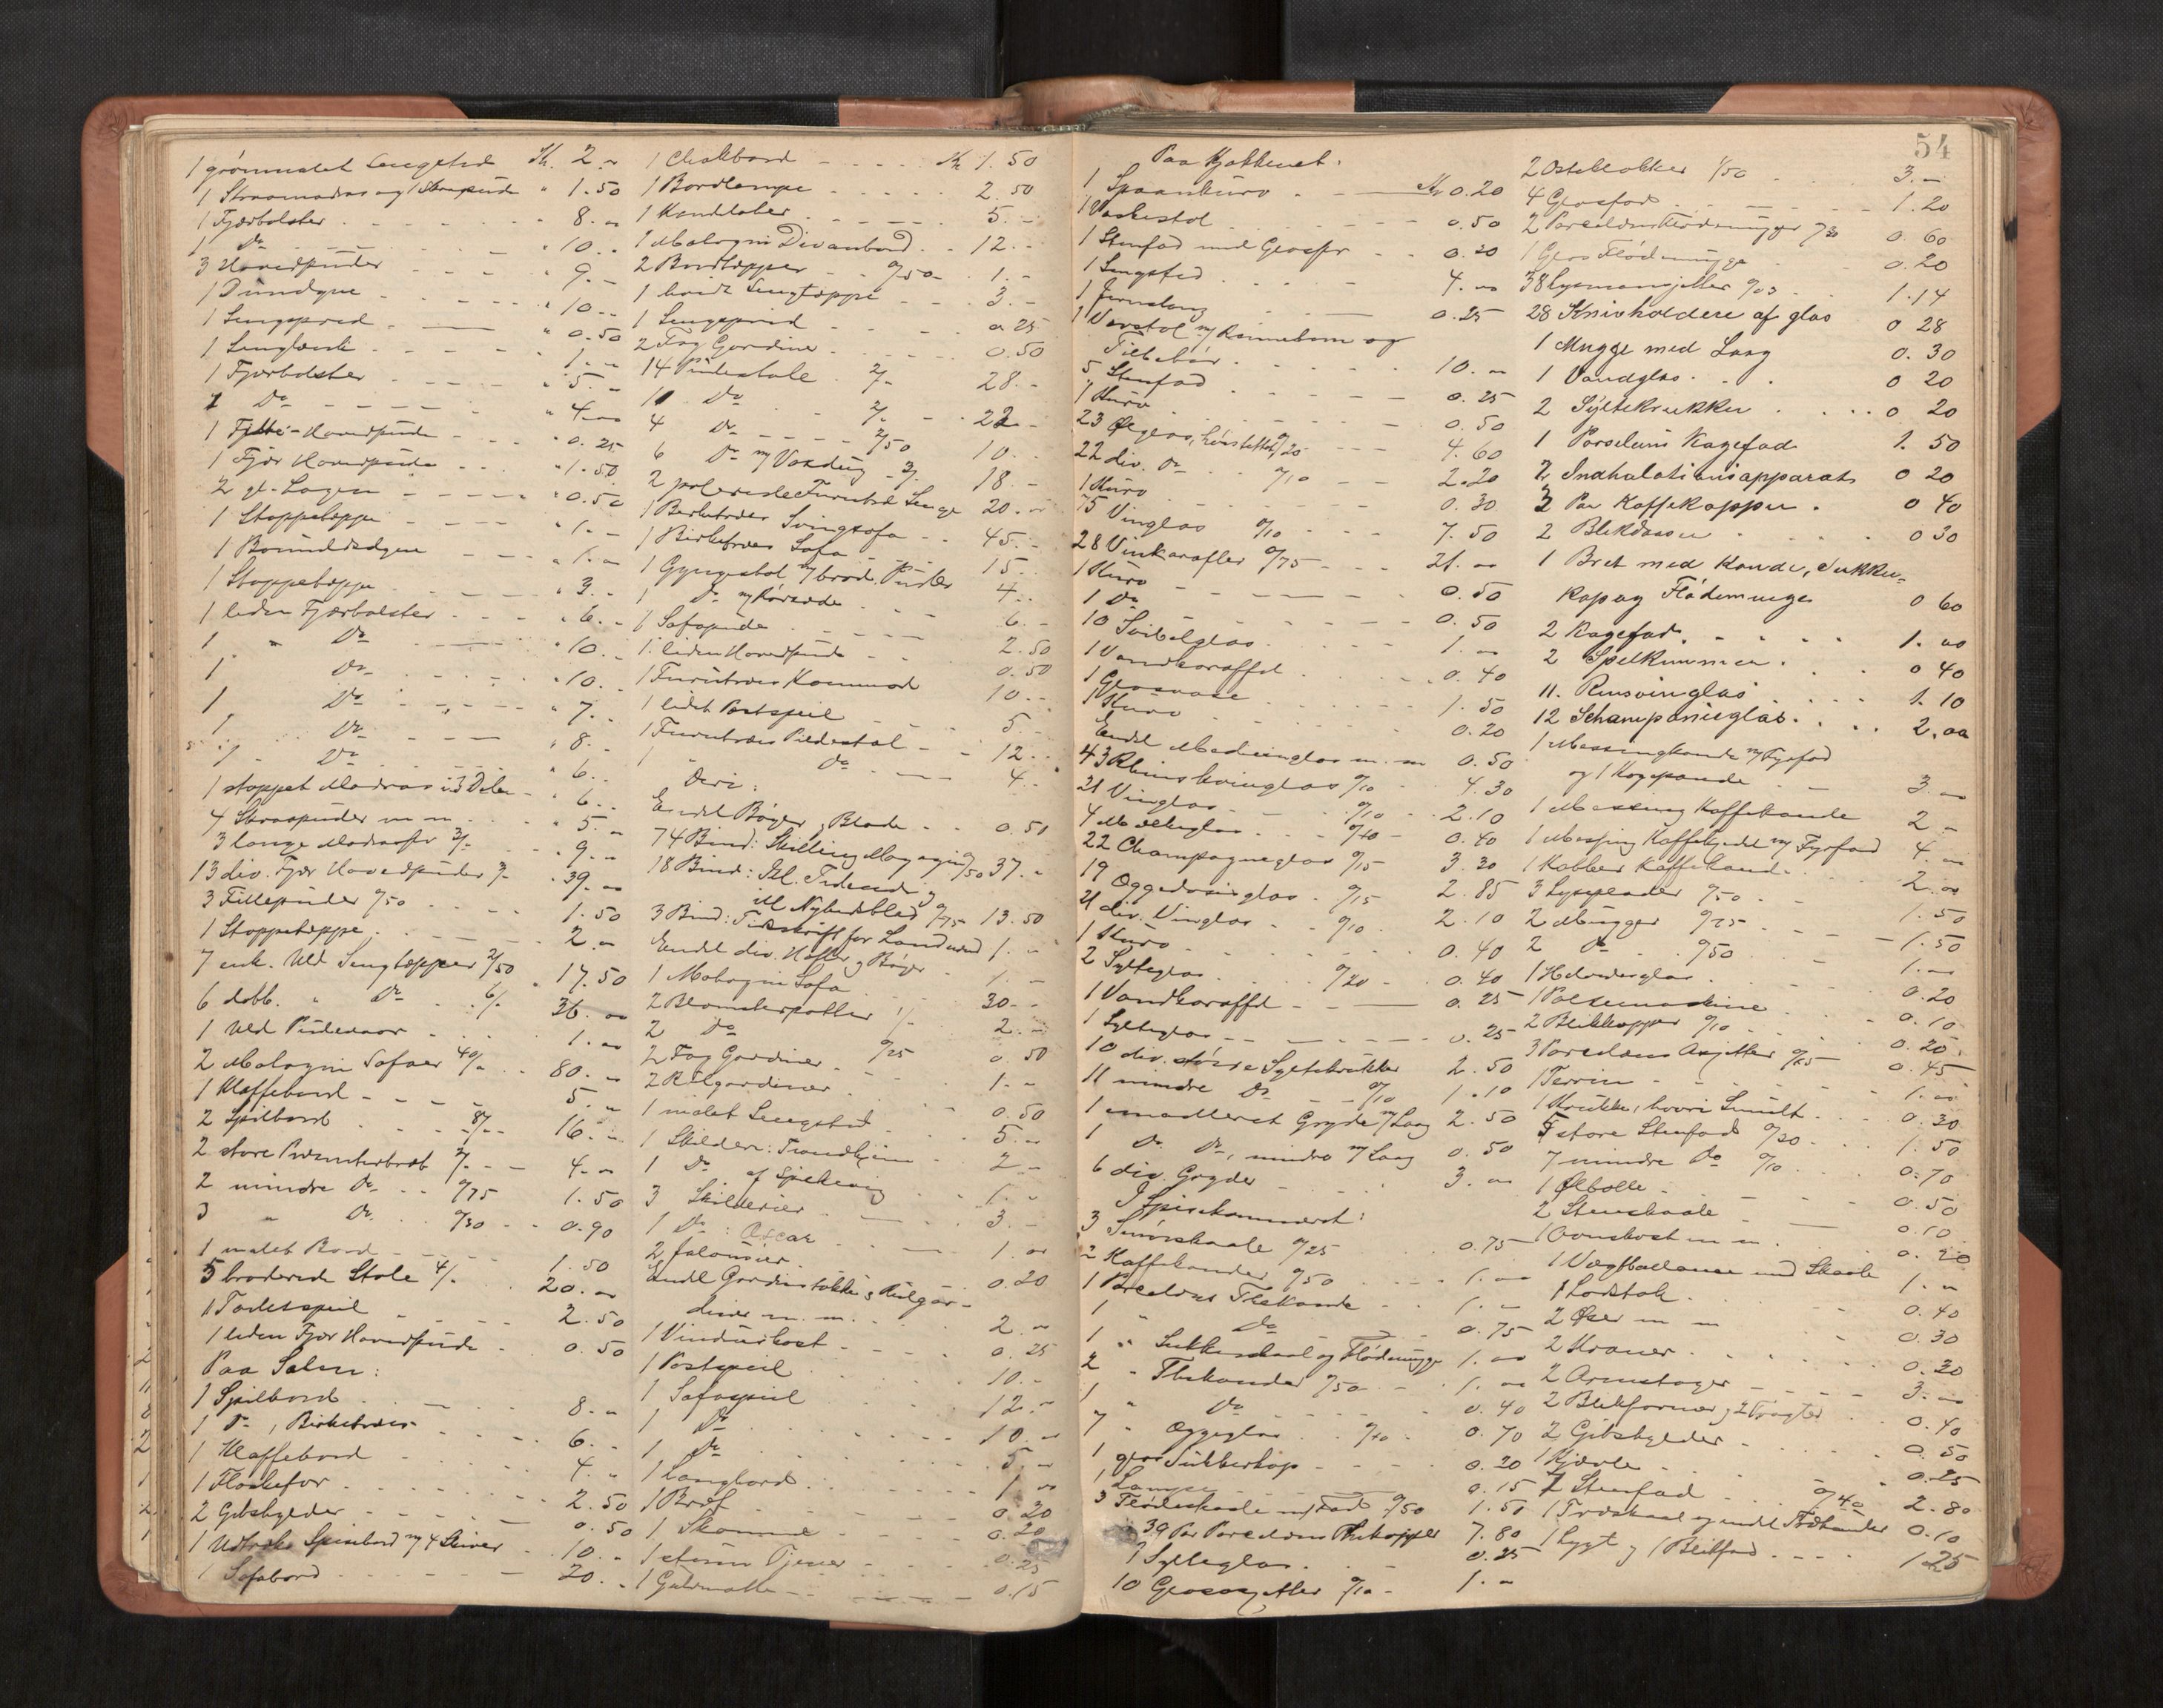 1 grønmalet Sengested Kr. 2.-
1 Straamadras og 1 Straapude " 1.50
1 Fjærbolster 8.-
1 Do 10.-
3 Hovedpuder 9.-
1 Dundyne 10.-
1 Sengspred " 0.50
1 Senglænk 1.-
1 Fjærbolster " 5.-
1 Do " 4.-
1 Hovedpude " 0.25
1 Fjær Hovedpude " 1.50
2 gl. Lagen " 0.50
1 Stoppeteppe " 1.-
1 " 1.-
1 Stoppeteppe " 3.-
1 liden Fjærbolster " 6.-
1 " Do " 10.-
1 Do " 10.-
1 Do " 7.-
1 Do " 8.-
1 Do " 6.-
1 stoppet Madras i 3 Dele " 6.-
4 Straapuder m m " 5.-
3 lange Madrasser 3/- " 9.-
13 div. Fjær Hovedpuder 3/- " 39.-
3 Fillepuder 0/50 1.50
1 Stoppeteppe 2.-
7 enk. Uld Sengtæpper 2/50 " 17.50
6 dobb. " Do 6/- 36.-
1 Uld 1.-
2 Mahogni Sofaer 40/- 80.-
1 Klaffebord 5.-
2 Spilbord 8/- 16.-
2 store 2/- 4.-
2 mindre Do 0/75 1.50
3 " Do 0/30 0.90
1 malet Bord 1.50
5 broderede Stole 4/- 20.-
1 Toiletspeil 2.50
1 liden Fjær Hovedpude 0.50
Paa Salen:
1 Spilbord 8.-
1 Do, Birketræs 6.-
1 Klaffebord 4.-
1 Flaskefor 2.50
2 Gibshylder 0.50
1 Udtræks Spisebord m/ 4 Skiver 10.-
1 Sofabord 20.-
1 Chakbord Kr 1.50
1 Bordlampe 2.50
1 Kandelaber 5.-
1 Mahogni Divanbord 12.-
2 Bordtepper 0/50 1.-
1 hvidt Sengteppe 3.-
1 Sengspred 0.25
2 Fag Gardiner 0.50
14 Pindestole 2/- 28.-
10 Do 2/- 22.-
4 Do 2/50 10.-
6 Do m/ Voxdug 3/- 18.-
2 polerede Furutræ Senge 20.-
1 Birketræes Svingsofa 45.-
1 Birketræes Sofa 15.-
1 Gyngestol m/ brod. Puder 4.-
1 Do m/ 6.-
1 Sofapude 2.50
1 liden Hovedpude 0.50
1 Furutræes Kommod 10.-
1 lidet Postspeil 5.-
1 Furutræes Piedestal 12.-
1 Do 4.-
Endel Bøger, Blade 0.50
74 Bind: Skilling Magazin 0/50 37.-
18 Bind: Ill. Tidende og
ill Nyhedsblad 0/75 13.50
3 Bind: Tidsskrift for Landmænd 1.-
Endel div. Hefter og Bøger 1.-
1 Mahogni Sofa 30.-
2 Blomsterpotter 1/- 2.-
2 Do 0/25 0.50
2 Fag Gardiner 1.-
2 Rulgardiner 0.50
1 malet Sengested 5.-
1 Skilderi: Trondhjem 2.-
1 Do af 1.-
3 Skilderier 3.-
1 Do: Oscar 1.-
2 Jalousier 0.20
Endel Gardinstokke & Rulgar-
diner m. m. 2.-
1 Vinduskost 0.25
1 Postspeil 10.-
1 Sofaspeil 12.-
1 Do 10.-
1 Do 5.-
1 Langbord 1.-
1 0.20
1 Skammel 0.20
1 Tjener 0.25
1 Gulvmatte 0.15
54
Paa Kjøkkenet:
1 Spaankurv Kr 0.20
1 Vaskestol 0.50
1 Stenfad med 0.20
1 Sengsted 4.-
1 Jernstang 0.25
1 Vævstol m/ Rennebom og
Tilbehør 10.-
5 Stenfad 0.25
1 Kurv 0.50
23 Ølglas, 0/20 4.60
22 div. Do 0/10 2.20
1 Kurv 0.30
75 Vinglas 0/10 7.50
28 Vinkarafler 0/75 21.-
1 Kurv 0.50
1 Do 0.50
10 Svibelglas 1.-
1 Vandkaraffel 0.40
1 Glasvase 1.50
1 Kurv 0.20
Endel Medicinglas m. m 0.50
43 Rhinskvinglas 0/10 4.30
21 Vinglas 0/10 2.10
4 0/10 0.40
22 Champagneglas 0/15 3.30
19 Eggedosisglas 0/15 2.85
21 div. Vinglas 0/10 2.10
1 Kurv 0.40
2 Sylteglas 0/20 0.40
1 Vandkaraffel 0.25
1 Sylteglas 0.25
10 div. større Syltekrukker 2.50
11 mindre Do 0/10 1.10
1 emailleret Gryde m/ Laag 2.50
1 Do Do, mindre m/ Laag 0.50
6 div. Gryder 3.-
I Spisekammerset:
3 Smørskaale 0/25 0.75
2 Kaffekander 0/50 1.-
1 Porcelæns Thekande 1.-
1 " Do 0.75
1 " Sukkerskaal og Flødemugge 1.-
2 " Thekander 0/50 1.-
1 " Do 0.40
7 " Eggeglas 0/10 0.70
1 glas Sukkerkop 0.20
1 Lampe 0.15
3 Flødeskaale m/ Fad 0/50 1.50
39 Par Porcelæns Thekopper 7.80
1 Sylteglas 0.25
10 Glasasjetter 0/10 1.-
2 Osteklokker 1/50 3.-
4 Glasfad 1.20
2 Porcelæns Flødemugger 0/30 0.60
1 Glas Flødemugge 0.20
38 Lysmansjetter 0/03 1.14
28 Knivholdere af glas 0 28
1 Mugge med Laag 0.30
1 Vandglas 0 20
2 Syltekrukker 0 20
1 Porselæns Kagefad 1.50
2 Indhalationsapparat 0 20
2 Par Kaffekopper 0 40
2 Blikdaaser 0 30
1 Bret med Kande, Sukker-
kop og Flødemugge 0 60
2 Kagefad 1.00
2 Spelkummer 0 40
11. Rinsvinglas 1.10
12 Schampanieglas 2.00
1 Messingkande m/ Fyrfad
og 1 Kogepande 3.-
1 Messing Kaffekande 2.-
1 Messing Kaffekjedel m/ Fyrfad 4.-
1 Kobber Kaffekande 2.-
3 0/50 1.50
2 Mugger 0/75 1.50
2 Do 0/50 1.-
1 0.20
1 Pølsemaskine 0.10
2 Blikkopper 0/10 0.20
3 Porcelæns Asjetter 0/15 0.45
1 Terrin 1.-
1 Krukke, hvori Smult 0.30
5 store Stenfad 0/30 1.50
7 mindre Do 0/10 0.70
1 Ølbolle 0.50
2 Stenskaale 0.10
1 Ovnskost m m 0.20
1 Vægtballance med Skaale 1.-
1 0.40
2 Øser m m 0.30
2 Kraner 0.30
2 Armstager 3.-
2 Blikformer, 2 Tragter 0.40
2 Gibshylder 0.50
1 Kjævle 0.25
7 Stenfad 0/40 2.80
1 Træskaal og endel 0.10
1 Lygt og 1 Blikfad 1.25